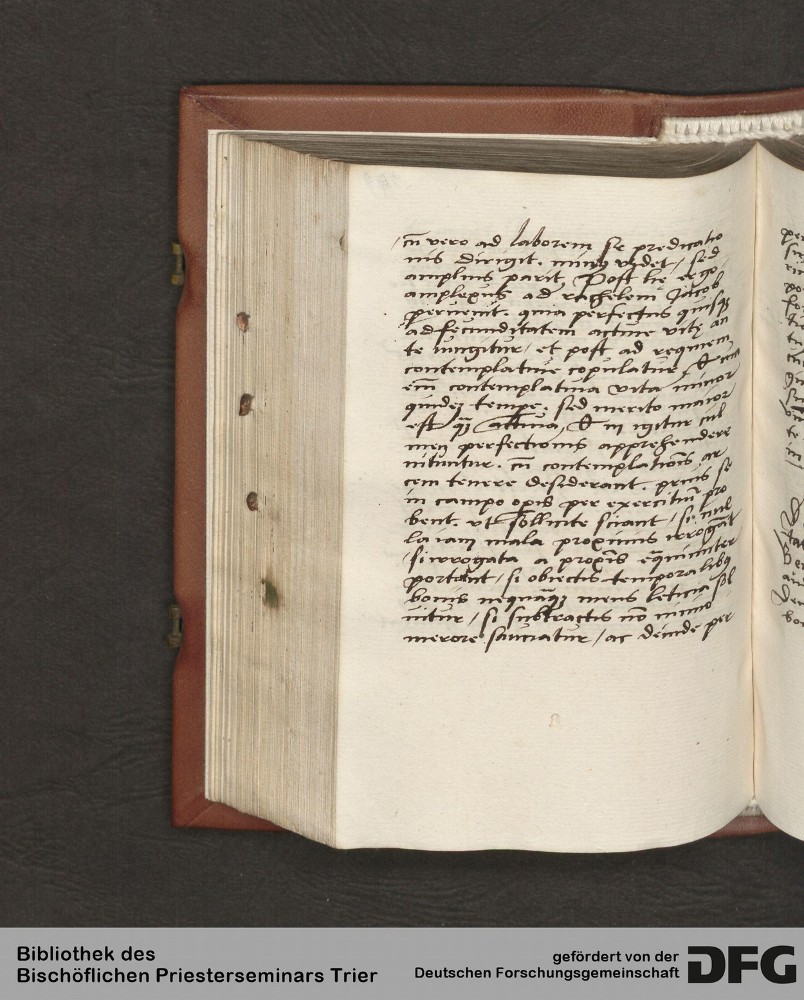 cū vero ad laborem se predicatio
nis dirigit. minꝰ videt / sed
amplius parit. Post lie ergo
amplexus ad rachelem Jacob
peruenit. quia perfectus quisqȝ
ad fecunditatem actiue vitę an
te iungitur / et post ad requiem
contemplatiue copulatur /
em̄ contemplatiua vita minor
quidem tempe. sed merito maior
est qȝ actiua /
perfectionis apprehendere
nituntur. cū contemplatiōis ar
cem tenere desiderant. prius se
in campo opis per exercitiū pro
bent. vt sollicite sciant / si nul
la iam mala proximis irrogāt
/ si irrogata a proxīs equanimiter
portant / si obiectis temporalibꝰ
bonis nequaqȝ mens leticia sol
uitur / si subtractis nō nimio
merore sauciatur / ac deinde per
Bibliothek des
Bischöflichen Priesterseminars Trier
gefördert von der
Deutschen Forschungsgemeinschaft
DFG